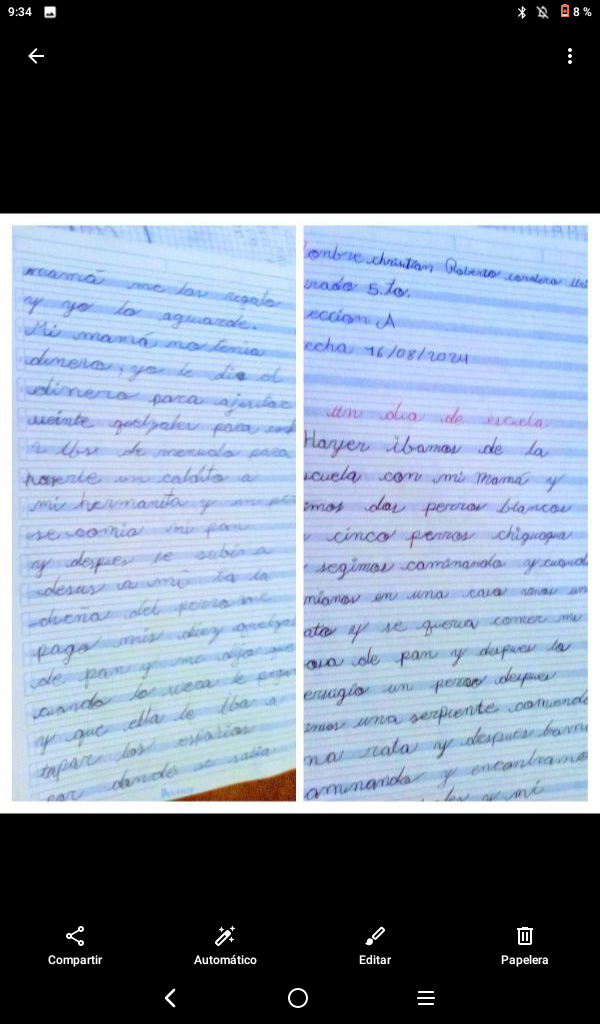 9:34
8 %
mamá me los regalo
y yo lo aguarde.
Mi mamá no tenia
dinero, yo le di el
dinero para ajustar
veinte quetzales para
lbs de menudo para
hacerle un caldito a
mi hermanita y
se comia mi pan
y despues se subir a
la
dueña del perro me
pago mis diez
de pan y me dijo que
cuando lo viera le
y que ella le iba a
tapar los
por dondes se salia
ombre christian Roberto cordero
rado 5.to.
ección A
echa 16/08/2024
un dia de escuela
Hayer ibamos de la
scuela con mi mamá y
imos dos perros blancos
y cinco perros chiguagua
segimos caminando y cuando
en una casa un
ato y se queria comer mi
de pan y despues lo
un perro despues
imos una serpiente comiendo
na rata y despues
aminando y encontramos
y mi
Compartir
Automático
Editar
Papelera